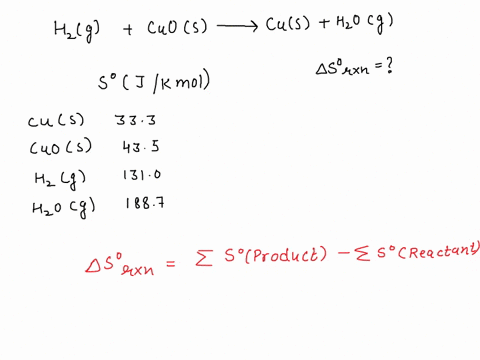 H₂(g) + CuO(s) ⟶ Cu(s) + H₂O(g)
ΔS°rxn = ?
S° (J/K mol)
Cu(s) 33.3
CuO(s) 43.5
H₂(g) 131.0
H₂O(g) 188.7
ΔS°rxn = Σ S°(Product) - Σ S°(Reactant)